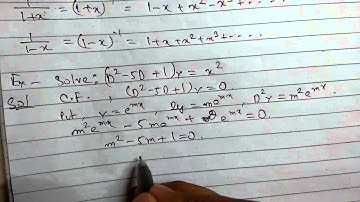 1/(1+x) = (1+x)^-1 = 1-x+x²-x³+....
1/(1-x) = (1-x)^-1 = 1+x+x²+x³+....
Ex- Solve: (D²-5D+1)y = x²
Sol C.F., (D²-5D+1)y = 0.
Put y = e^mx, Dy = me^mx, D²y = m²e^mx
m²e^mx - 5me^mx + e^mx = 0.
m² - 5m + 1 = 0.